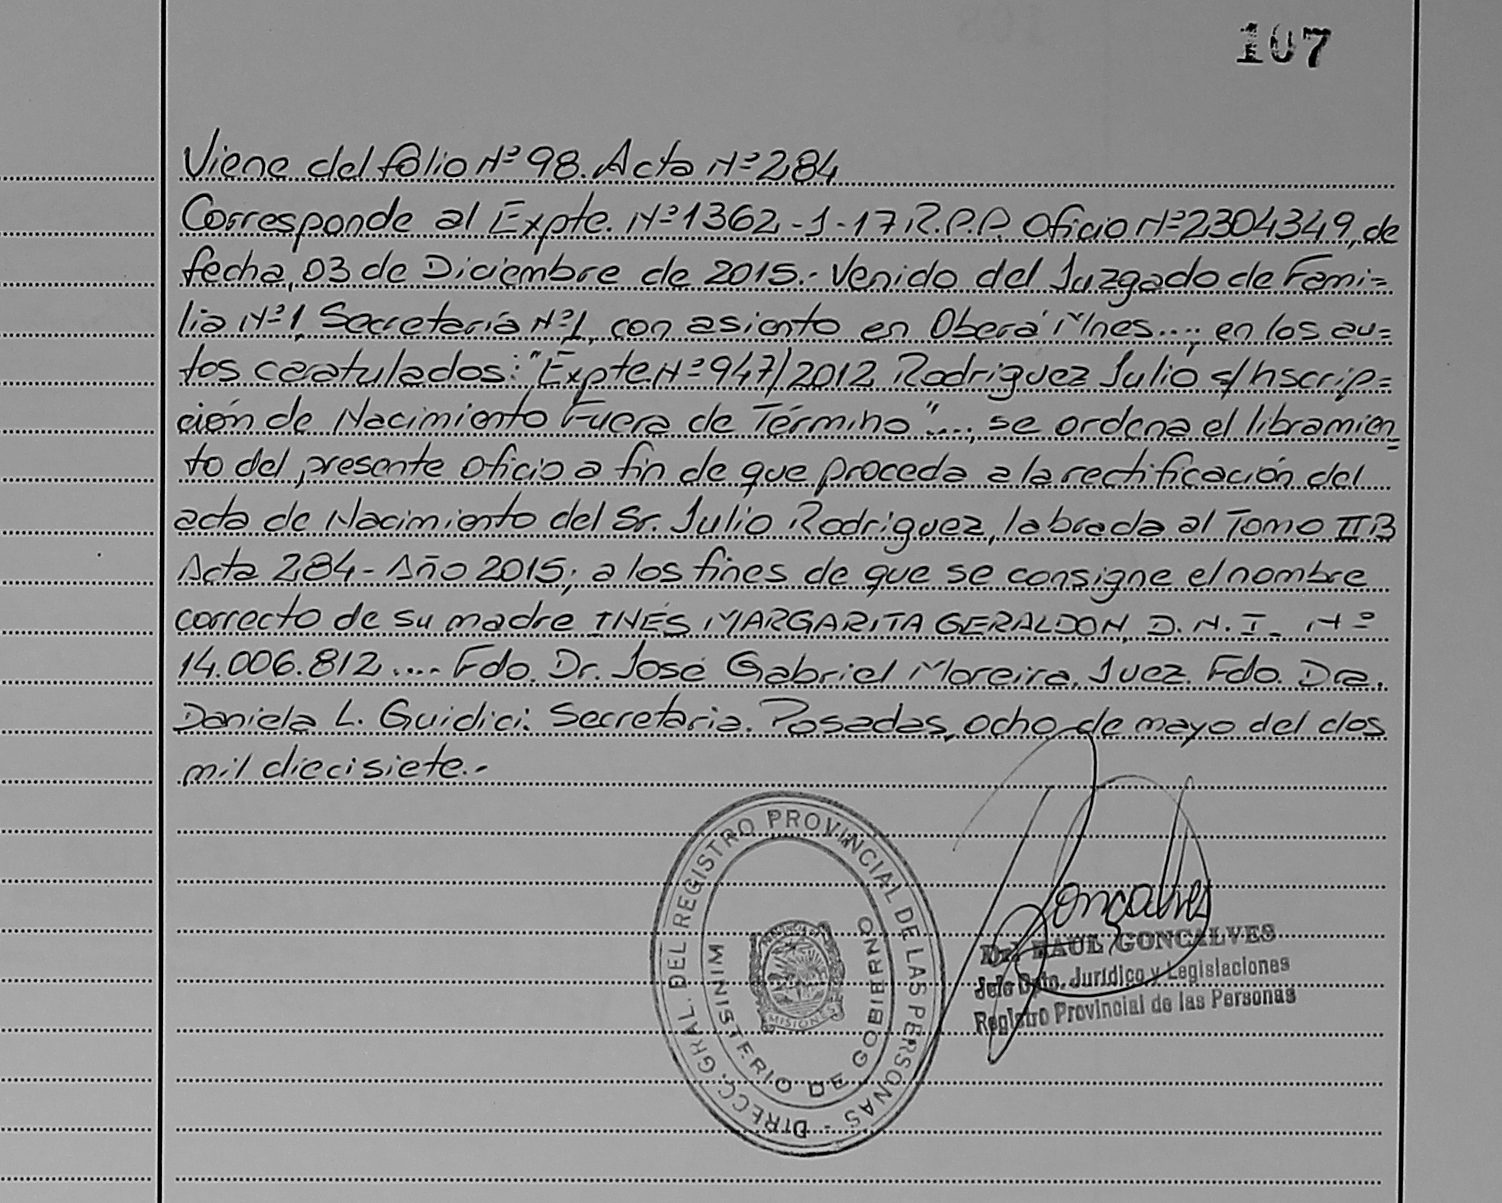 107
Viene del folio Nº 98. Acta Nº 284
Corresponde al Expte. Nº 1362-1-17 R.P.P. Oficio Nº 2304349, de
fecha, 03 de Diciembre de 2015.- Venido del Juzgado de Fami=
lia Nº 1, Secretaría Nº 1, con asiento en Oberá Mnes....; en los au=
tos caratulados: "Expte Nº 947/2012 Rodriguez Julio s/Inscrip=
ción de Nacimiento Fuera de Término"...., se ordena el libramien=
to del presente oficio a fin de que proceda a la rectificación del
acta de Nacimiento del Sr. Julio Rodriguez, labrada al Tomo II B
Acta 284 - Año 2015; a los fines de que se consigne el nombre
correcto de su madre INÉS MARGARITA GERALDON, D.N.I. Nº
14.006.812.... Fdo. Dr. José Gabriel Moreira. Juez. Fdo. Dra.
Daniela L. Guidici: Secretaria. Posadas, ocho de mayo del dos
mil diecisiete.-
DIRECC. GRAL. DEL REGISTRO PROVINCIAL DE LAS PERSONAS -
MINISTERIO DE GOBIERNO
MISIONES
Gonçalves
Dr. RAUL GONCALVES
Jefe Dpto. Jurídico y Legislaciones
Registro Provincial de las Personas